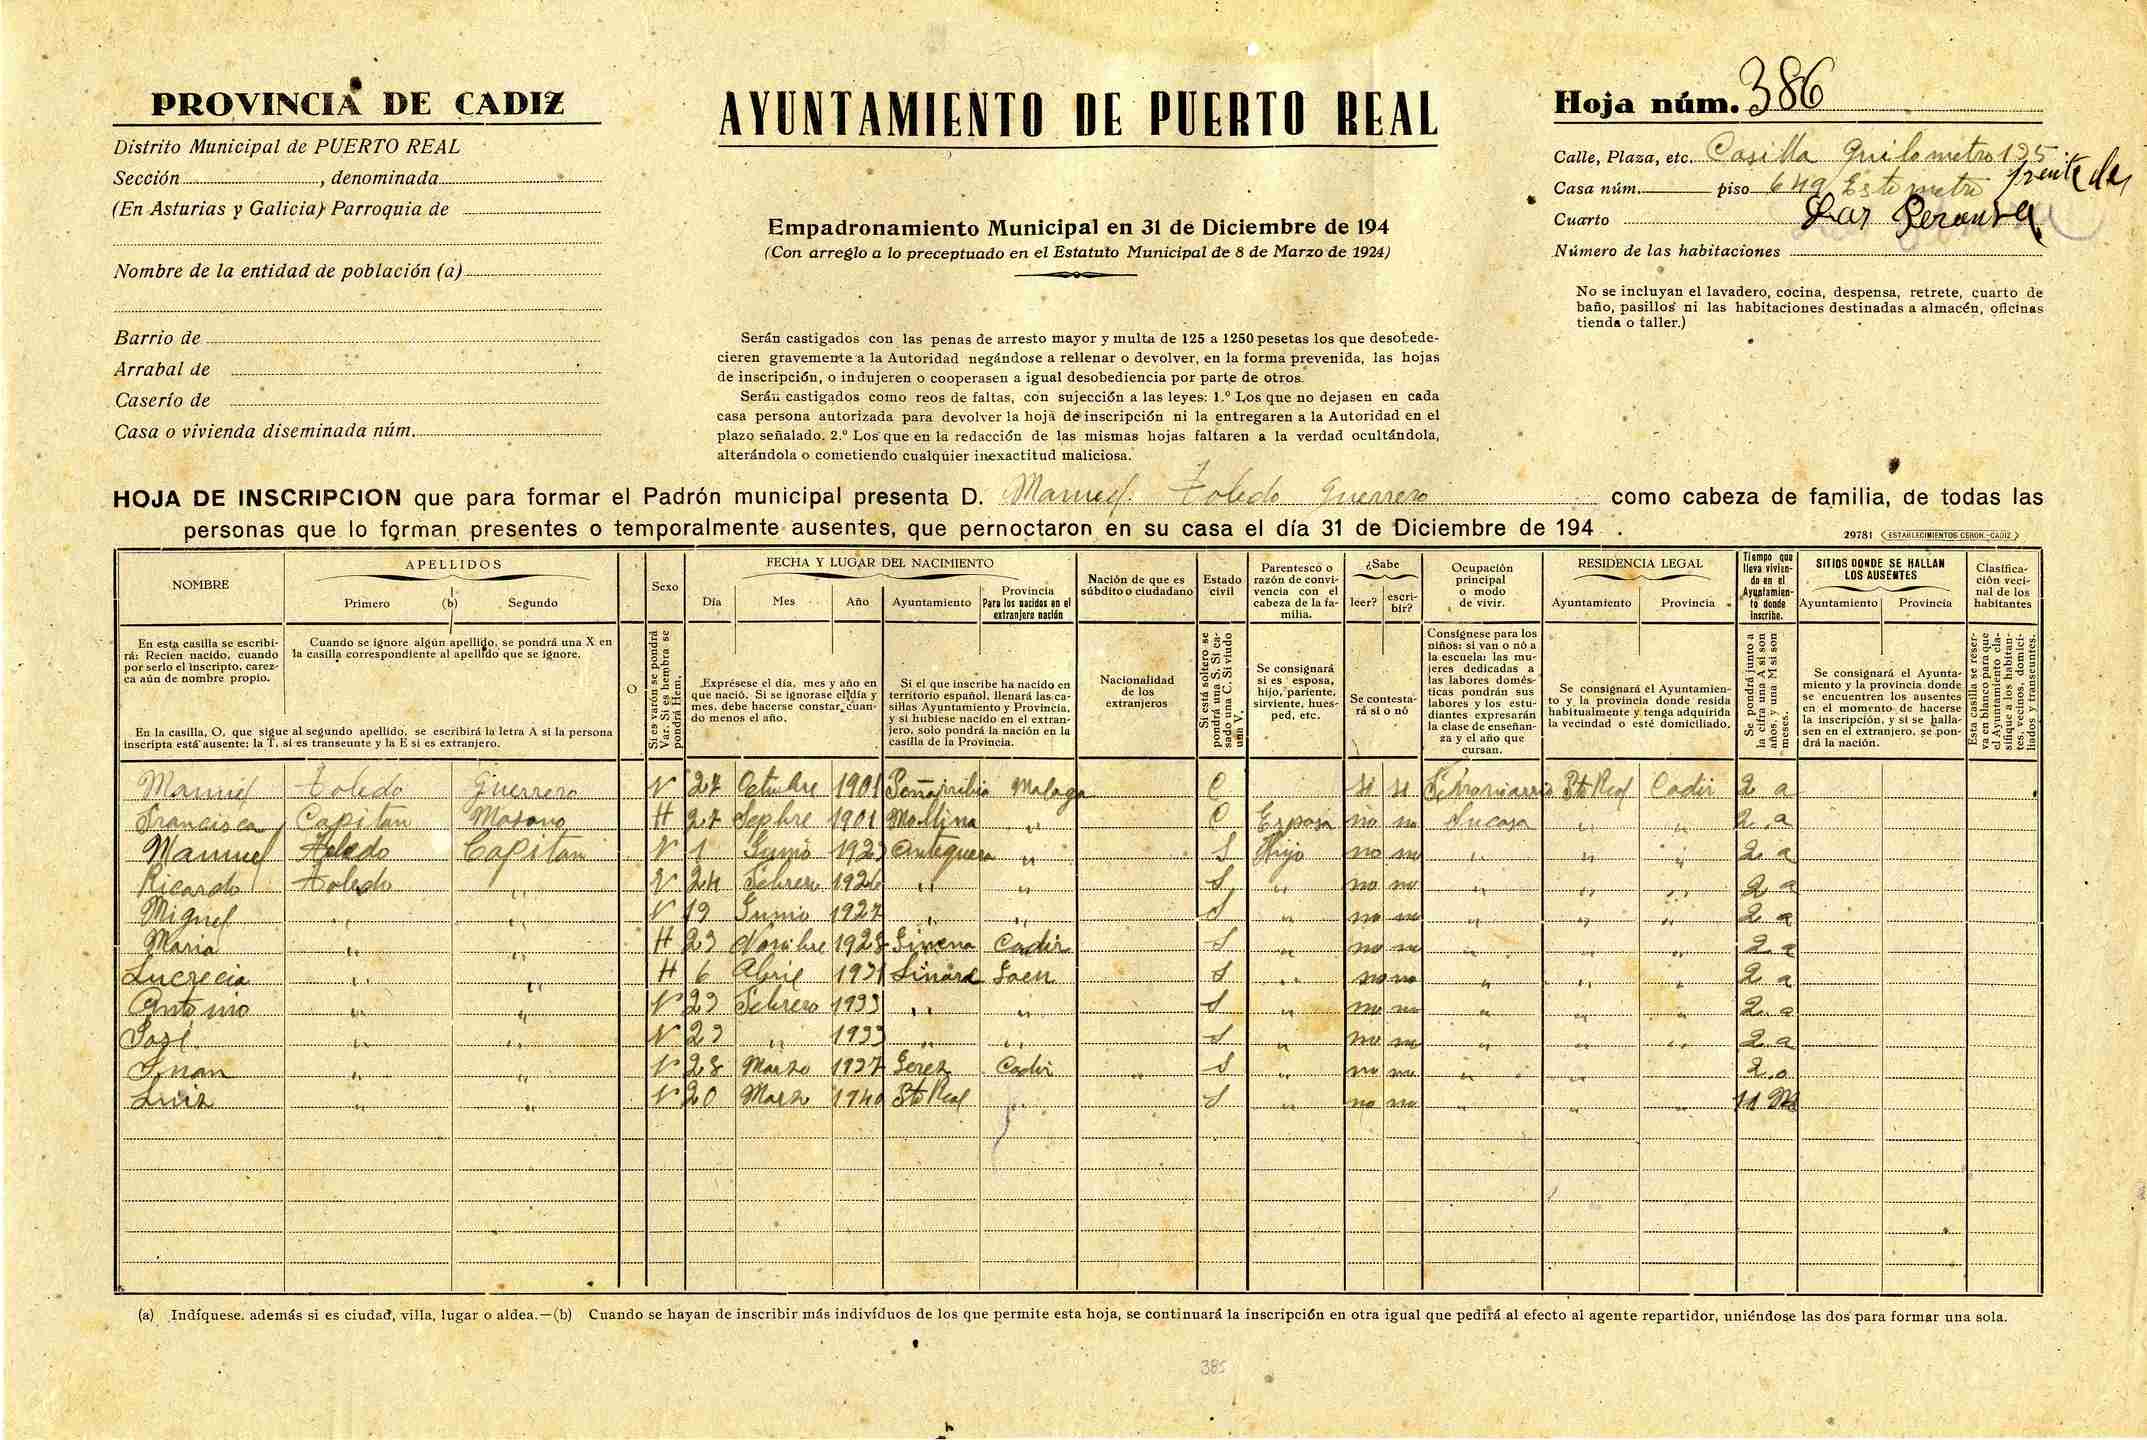 PROVINCIA DE CADIZ
Distrito Municipal de PUERTO REAL
Sección , denominada
(En Asturias y Galicia) Parroquia de
Nombre de la entidad de población (a)
Barrio de
Arrabal de
Caserío de
Casa o vivienda diseminada núm.
AYUNTAMIENTO DE PUERTO REAL
Empadronamiento Municipal en 31 de Diciembre de 194
(Con arreglo a lo preceptuado en el Estatuto Municipal de 8 de Marzo de 1924)
Serán castigados con las penas de arresto mayor y multa de 125 a 1250 pesetas los que desobede-
cieren gravemente a la Autoridad negándose a rellenar o devolver, en la forma prevenida, las hojas
de inscripción, o indujeren o cooperasen a igual desobediencia por parte de otros.
Serán castigados como reos de faltas, con sujección a las leyes: 1.º Los que no dejasen en cada
casa persona autorizada para devolver la hoja de inscripción ni la entregaren a la Autoridad en el
plazo señalado. 2.º Los que en la redacción de las mismas hojas faltaren a la verdad ocultándola,
alterándola o cometiendo cualquier inexactitud maliciosa.
Hoja núm. 386
Calle, Plaza, etc. Casilla Quilometro 125
Casa núm. piso 649 frente de
Cuarto
Número de las habitaciones
No se incluyan el lavadero, cocina, despensa, retrete, cuarto de
baño, pasillos ni las habitaciones destinadas a almacén, oficinas
tienda o taller.)
HOJA DE INSCRIPCION que para formar el Padrón municipal presenta D. Manuel Toledo Guerrero como cabeza de familia, de todas las
personas que lo forman presentes o temporalmente ausentes, que pernoctaron en su casa el día 31 de Diciembre de 194 .
29781 (ESTABLECIMIENTOS CERON.-CADIZ)
NOMBRE
En esta casilla se escribi-
rá: Recien nacido, cuando
por serlo el inscripto, carez-
ca aún de nombre propio.
APELLIDOS
Primero (b) Segundo
Cuando se ignore algún apellido, se pondrá una X en
la casilla correspondiente al apellido que se ignore.
En la casilla, O, que sigue al segundo apellido, se escribirá la letra A si la persona
inscripta está ausente: la T, si es transeunte y la E si es extranjero.
O
Sexo
Si es varón se pondrá
Var. Si es hembra se
pondrá Hem.
FECHA Y LUGAR DEL NACIMIENTO
Día Mes Año Ayuntamiento Provincia
Para los nacidos en el
extranjero nación
Exprésese el día, mes y año en
que nació. Si se ignorase el día y
mes, debe hacerse constar, cuan-
do menos el año.
Si el que inscribe ha nacido en
territorio español, llenará las ca-
sillas Ayuntamiento y Provincia,
y si hubiese nacido en el extran-
jero, solo pondrá la nación en la
casilla de la Provincia.
Nación de que es
súbdito o ciudadano
Nacionalidad
de los
extranjeros
Estado
civil
Si está soltero se
pondrá una S. Si ca-
sado una C. Si viudo
una V.
Parentesco o
razón de convi-
vencia con el
cabeza de la fa-
milia.
Se consignará
si es esposa,
hijo, pariente,
sirviente, hues-
ped, etc.
¿Sabe
leer? escri-
bir?
Se contesta-
rá sí o nó
Ocupación
principal
o modo
de vivir.
Consígnese para los
niños: si van o nó a
la escuela: las mu-
jeres dedicadas a
las labores domés-
ticas pondrán sus
labores y los estu-
diantes expresarán
la clase de enseñan-
za y el año que
cursan.
RESIDENCIA LEGAL
Ayuntamiento Provincia
Se consignará el Ayuntamien-
to y la provincia donde resida
habitualmente y tenga adquirida
la vecindad o esté domiciliado.
Tiempo que
lleva vivien-
do en el
Ayuntamien-
to donde
inscribe.
Se pondrá junto a
la cifra una A si son
años, y una M si son
meses.
SITIOS DONDE SE HALLAN
LOS AUSENTES
Ayuntamiento Provincia
Se consignará el Ayunta-
miento y la provincia donde
se encuentren los ausentes
en el momento de hacerse
la inscripción, y si se halla-
sen en el extranjero, se pon-
drá la nación.
Clasifica-
ción veci-
nal de los
habitantes
Esta casilla se reser-
va en blanco para que
el Ayuntamiento cla-
sifique a los habitan-
tes, vecinos, domici-
liados y transeuntes.
Manuel Toledo Guerrero V 27 Octubre 1901 Malaga C si si Pto Real Cadiz 2 a
Francisca Capitan Moreno H 27 Sepbre 1901 Mollina " C Esposa no no Su casa " " 2 a
Manuel Toledo Capitan V 1 Junio 1923 Antequera " S Hijo no no " " " 2 a
Ricardo Toledo " V 24 Febrero 1926 " " S " no no " " " 2 a
Miguel " " V 19 Junio 1927 " " S " no no " " " 2 a
Maria " " H 23 Novibre 1928 Cadiz S " no no " " " 2 a
Lucrecia " " H 6 Abril 1931 Linare Jaen S " no no " " " 2 a
Antonio " " V 23 Febrero 1933 " " S " no no " " " 2 a
José " " V 23 " 1933 " " S " no no " " " 2 a
Juan " " V 28 Marzo 1937 Jerez Cadiz S " no no " " 2 a
Luiz " " V 20 Marzo 1940 Pto Real " S " no no " " " 11 M
(a) Indíquese. además si es ciudad, villa, lugar o aldea.—(b) Cuando se hayan de inscribir más indivíduos de los que permite esta hoja, se continuará la inscripción en otra igual que pedirá al efecto al agente repartidor, uniéndose las dos para formar una sola.
385